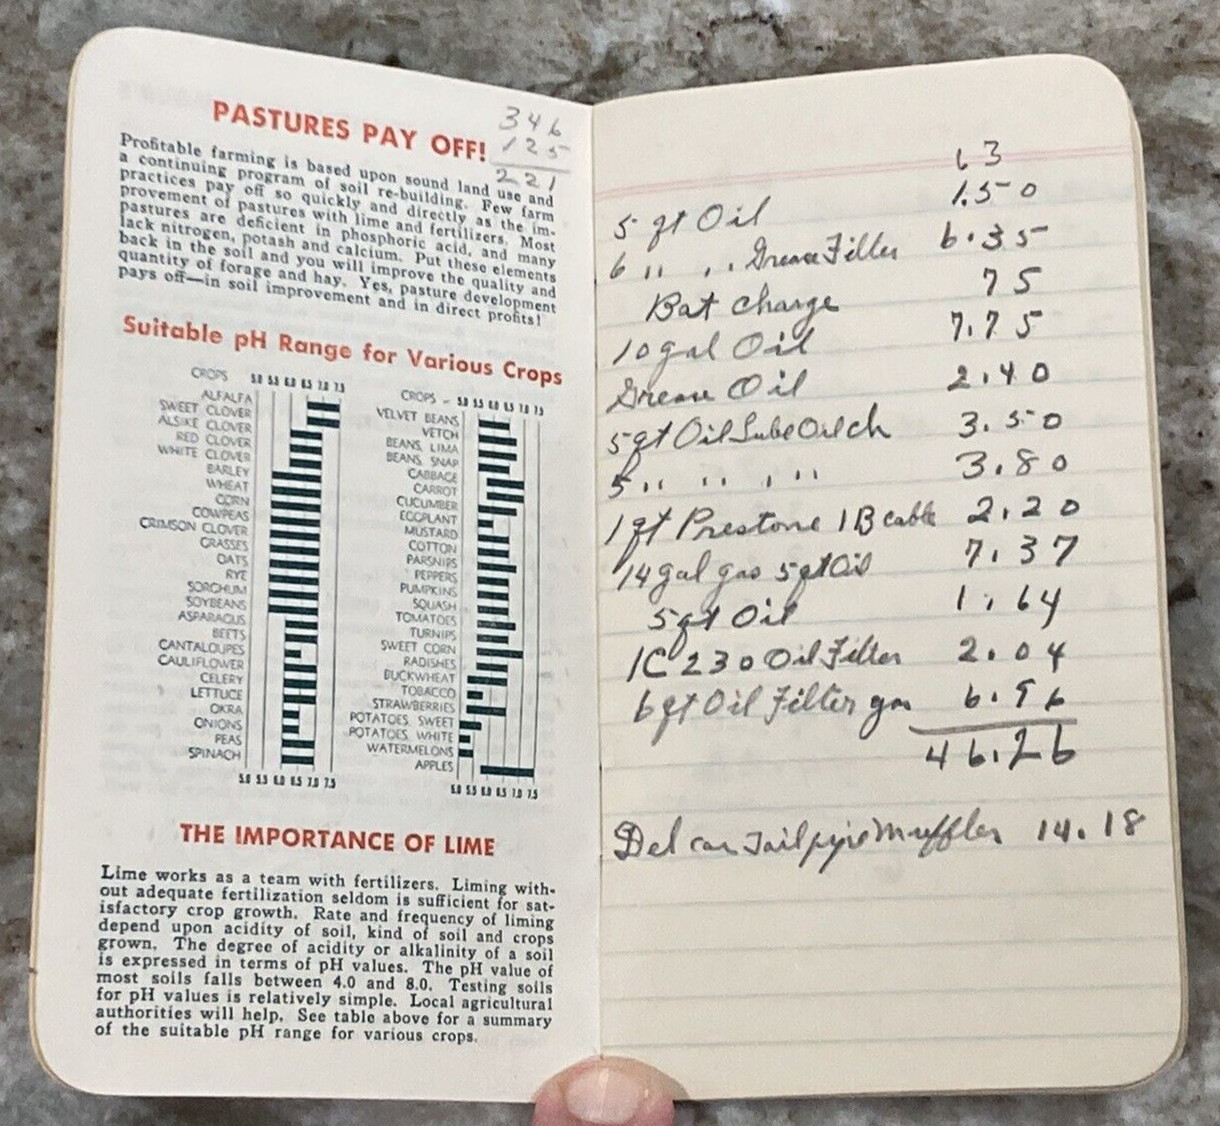 PASTURES PAY OFF!
346
125
221
Profitable farming is based upon sound land use and
a continuing program of soil re-building. Few farm
practices pay off so quickly and directly as the im-
provement of pastures with lime and fertilizers. Most
pastures are deficient in phosphoric acid, and many
lack nitrogen, potash and calcium. Put these elements
back in the soil and you will improve the quality and
quantity of forage and hay. Yes, pasture development
pays off—in soil improvement and in direct profits!
Suitable pH Range for Various Crops
CROPS 5.0 5.5 6.0 6.5 7.0 7.5
ALFALFA
SWEET CLOVER
ALSIKE CLOVER
RED CLOVER
WHITE CLOVER
BARLEY
WHEAT
CORN
COWPEAS
CRIMSON CLOVER
GRASSES
OATS
RYE
SORGHUM
SOYBEANS
ASPARAGUS
BEETS
CANTALOUPES
CAULIFLOWER
CELERY
LETTUCE
OKRA
ONIONS
PEAS
SPINACH
5.0 5.5 6.0 6.5 7.0 7.5
CROPS - 5.0 5.5 6.0 6.5 7.0 7.5
VELVET BEANS
VETCH
BEANS, LIMA
BEANS, SNAP
CABBAGE
CARROT
CUCUMBER
EGGPLANT
MUSTARD
COTTON
PARSNIPS
PEPPERS
PUMPKINS
SQUASH
TOMATOES
TURNIPS
SWEET CORN
RADISHES
BUCKWHEAT
TOBACCO
STRAWBERRIES
POTATOES, SWEET
POTATOES, WHITE
WATERMELONS
APPLES
5.0 5.5 6.0 6.5 7.0 7.5
THE IMPORTANCE OF LIME
Lime works as a team with fertilizers. Liming with-
out adequate fertilization seldom is sufficient for sat-
isfactory crop growth. Rate and frequency of liming
depend upon acidity of soil, kind of soil and crops
grown. The degree of acidity or alkalinity of a soil
is expressed in terms of pH values. The pH value of
most soils falls between 4.0 and 8.0. Testing soils
for pH values is relatively simple. Local agricultural
authorities will help. See table above for a summary
of the suitable pH range for various crops.
63
5 qt Oil 1.50
6 " " Grease Filter 6.35
Bat charge 75
10 gal Oil 7.75
Grease Oil 2.40
5 qt Oil Lube Oil ch 3.50
5 " " " " 3.80
1 qt Prestone 1 B cable 2.20
14 gal gas 5 qt Oil 7.37
5 qt Oil 1.64
1 C 230 Oil Filter 2.04
6 qt Oil Filter gas 6.96
46.26
Del car Tailpipe Muffler 14.18